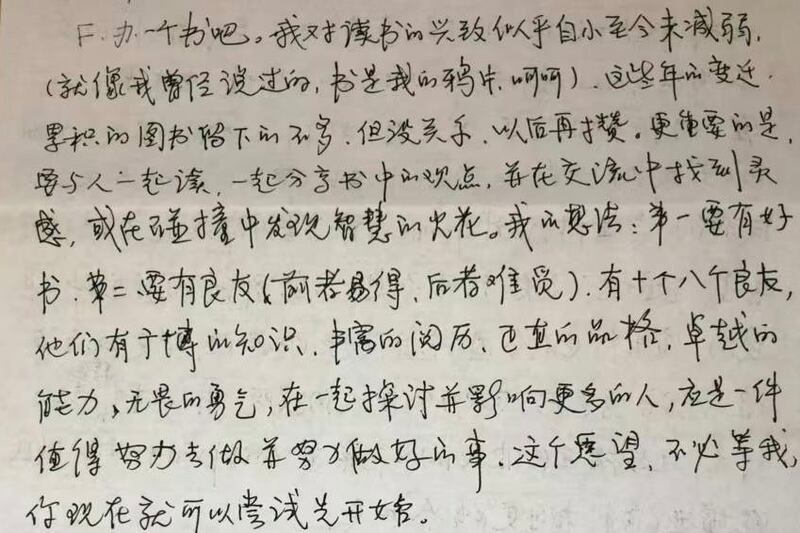 F. 办一个书吧。我对读书的兴致似乎自小至今未减弱,
(就像我曾经说过的,书是我的鸦片,呵呵).这些年的变迁.
累积的图书留下的不多.但没关系、以后再攒。更重要的是,
要与人一起读,一起分享书中的观点,并在交流中找到灵
感,或在碰撞中发现智慧的火花。我的想法:第一要有好
书.第二要有良友(前者易得、后者难觅).有十个八个良友,
他们有广博的知识、丰富的阅历、正直的品格、卓越的
能力、无畏的勇气,在一起探讨并影响更多的人,应是一件
值得努力去做并努力做好的事.这个愿望、不必等我,
你现在就可以尝试先开始。